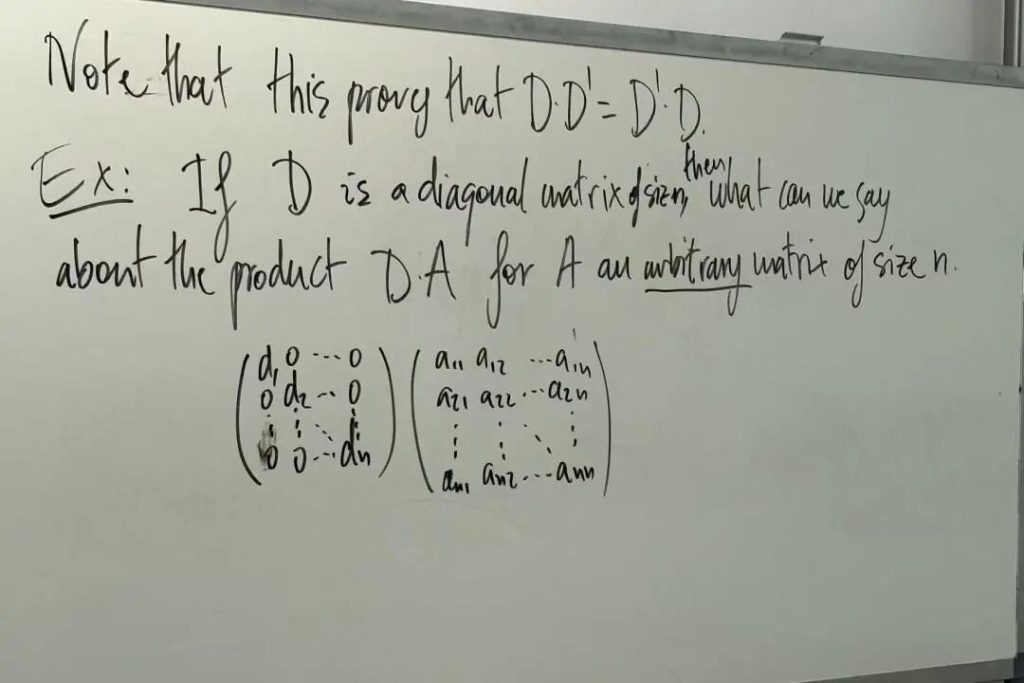 Note that this proves that D·D' = D'·D.
Ex: If D is a diagonal matrix of size n, then what can we say
about the product D·A for A an arbitrary matrix of size n.
d₁ 0 ... 0   a₁₁ a₁₂ ... a₁ₙ
0 d₂ ... 0   a₂₁ a₂₂ ... a₂ₙ
⋮ ⋮ ⋱ ⋮   ⋮ ⋮ ⋱ ⋮
0 0 ... dₙ   aₙ₁ aₙ₂ ... aₙₙ